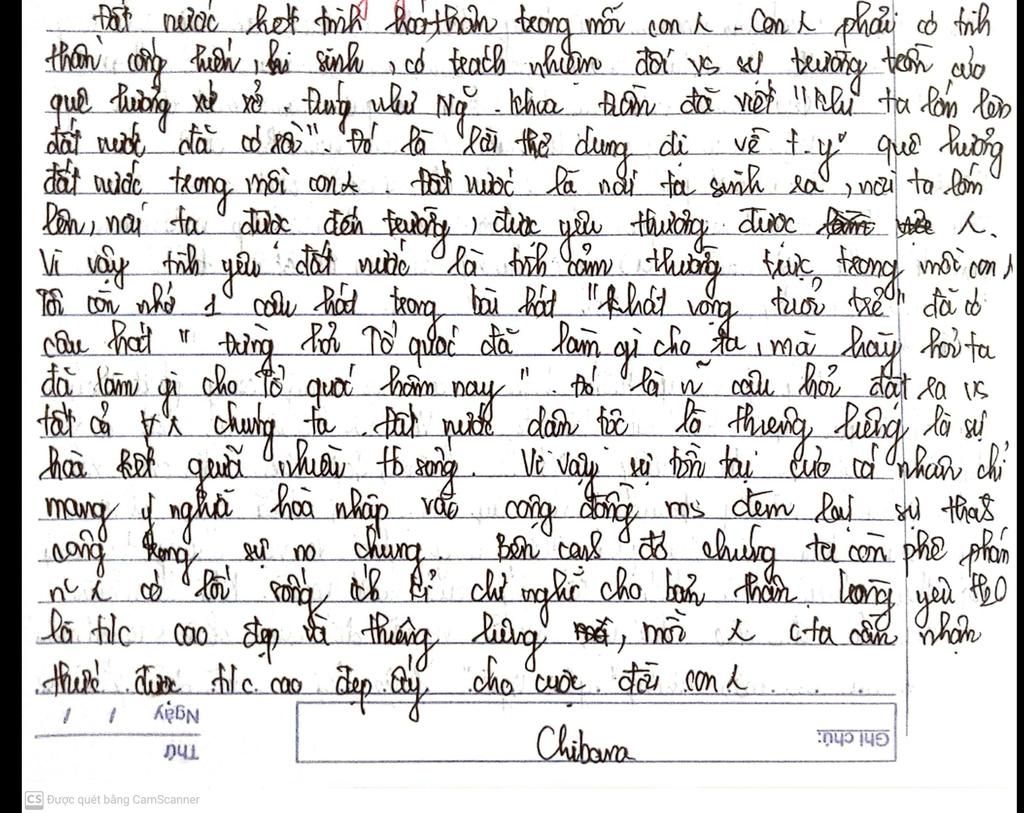 Đất nước kết tinh hoá thân trong mỗi con λ. Con λ phải có tinh
thần cống hiến, hi sinh, có trách nhiệm đối vs sự trường tồn của
quê hương xứ xở. Đúng như Ng~ Khoa Điềm đã viết "Khi ta lớn lên
đất nước đã có rồi". Đó là lời thể dung dị về t.y quê hương
đất nước trong mỗi con λ. Đất nước là nơi ta sinh ra, nơi ta lớn
lên, nơi ta được đến trường, được yêu thương được λ.
Vì vậy tình yêu đất nước là tình cảm thường trực trong mỗi con λ
Tôi còn nhớ 1 câu hát trong bài hát "Khát vọng tuổi trẻ" đã có
câu hát " Đừng hỏi Tổ quốc đã làm gì cho ta, mà hãy hỏi ta
đã làm gì cho Tổ quốc hôm nay". Đó là n~ câu hỏi đặt ra vs
tất cả ∀ λ chúng ta. Đất nước dân tộc là thiêng liêng là sự
hoà kết giữa nhiều sống. Vì vậy sự tồn tại của cá nhân chỉ
mang ý nghĩa hoà nhập vào cộng đồng ms đem lại sự thành
công trong sự no chung. Bên cạnh đó chúng ta còn phê phán
λ có lối sống ích kỉ chỉ nghĩ cho bản thân. Lòng yêu
là t/c cao đẹp và thiêng liêng, mỗi λ cta cần nhận
thức được t/c cao đẹp ấy cho cuộc đời con λ
Ngày / /
Thứ
Ghi chú:
Chibana
CS Được quét bằng CamScanner